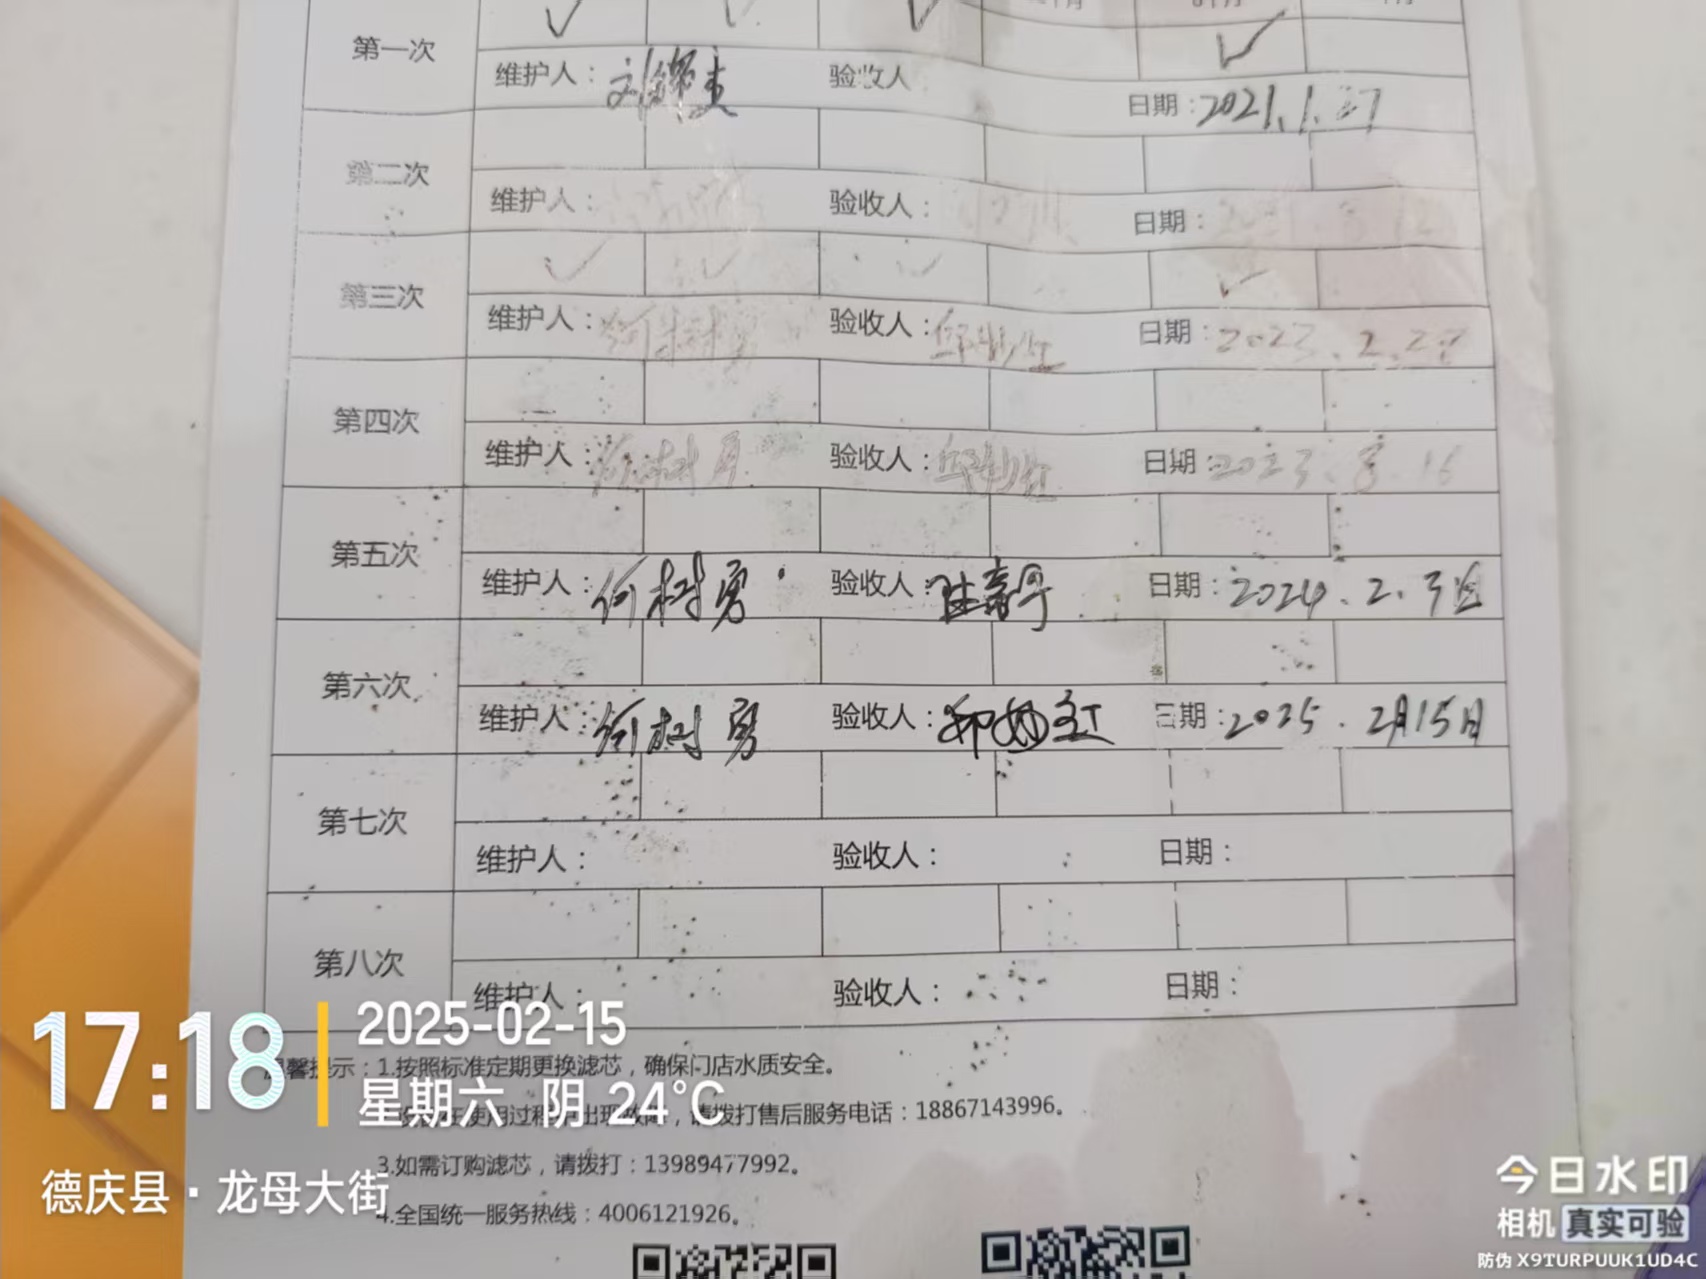 第一次
维护人： 验收人 日期：2021.1.27
第二次
维护人： 验收人： 日期：
第三次
维护人：何树勇 验收人： 日期：2023.2.2
第四次
维护人：何树勇 验收人： 日期：2023.8.16
第五次
维护人：何树勇 验收人： 日期：2024.2.
第六次
维护人：何树勇 验收人： 日期：2025.2月15日
第七次
维护人： 验收人： 日期：
第八次
维护人： 验收人： 日期：
温馨提示：1.按照标准定期更换滤芯，确保门店水质安全。
使用过程中出现故障，请拨打售后服务电话：18867143996。
3.如需订购滤芯，请拨打：13989477992。
4.全国统一服务热线：4006121926。
17:18
2025-02-15
星期六 阴 24°C
德庆县·龙母大街
今日水印
相机 真实可验
防伪 X9TURPUUK1UD4C